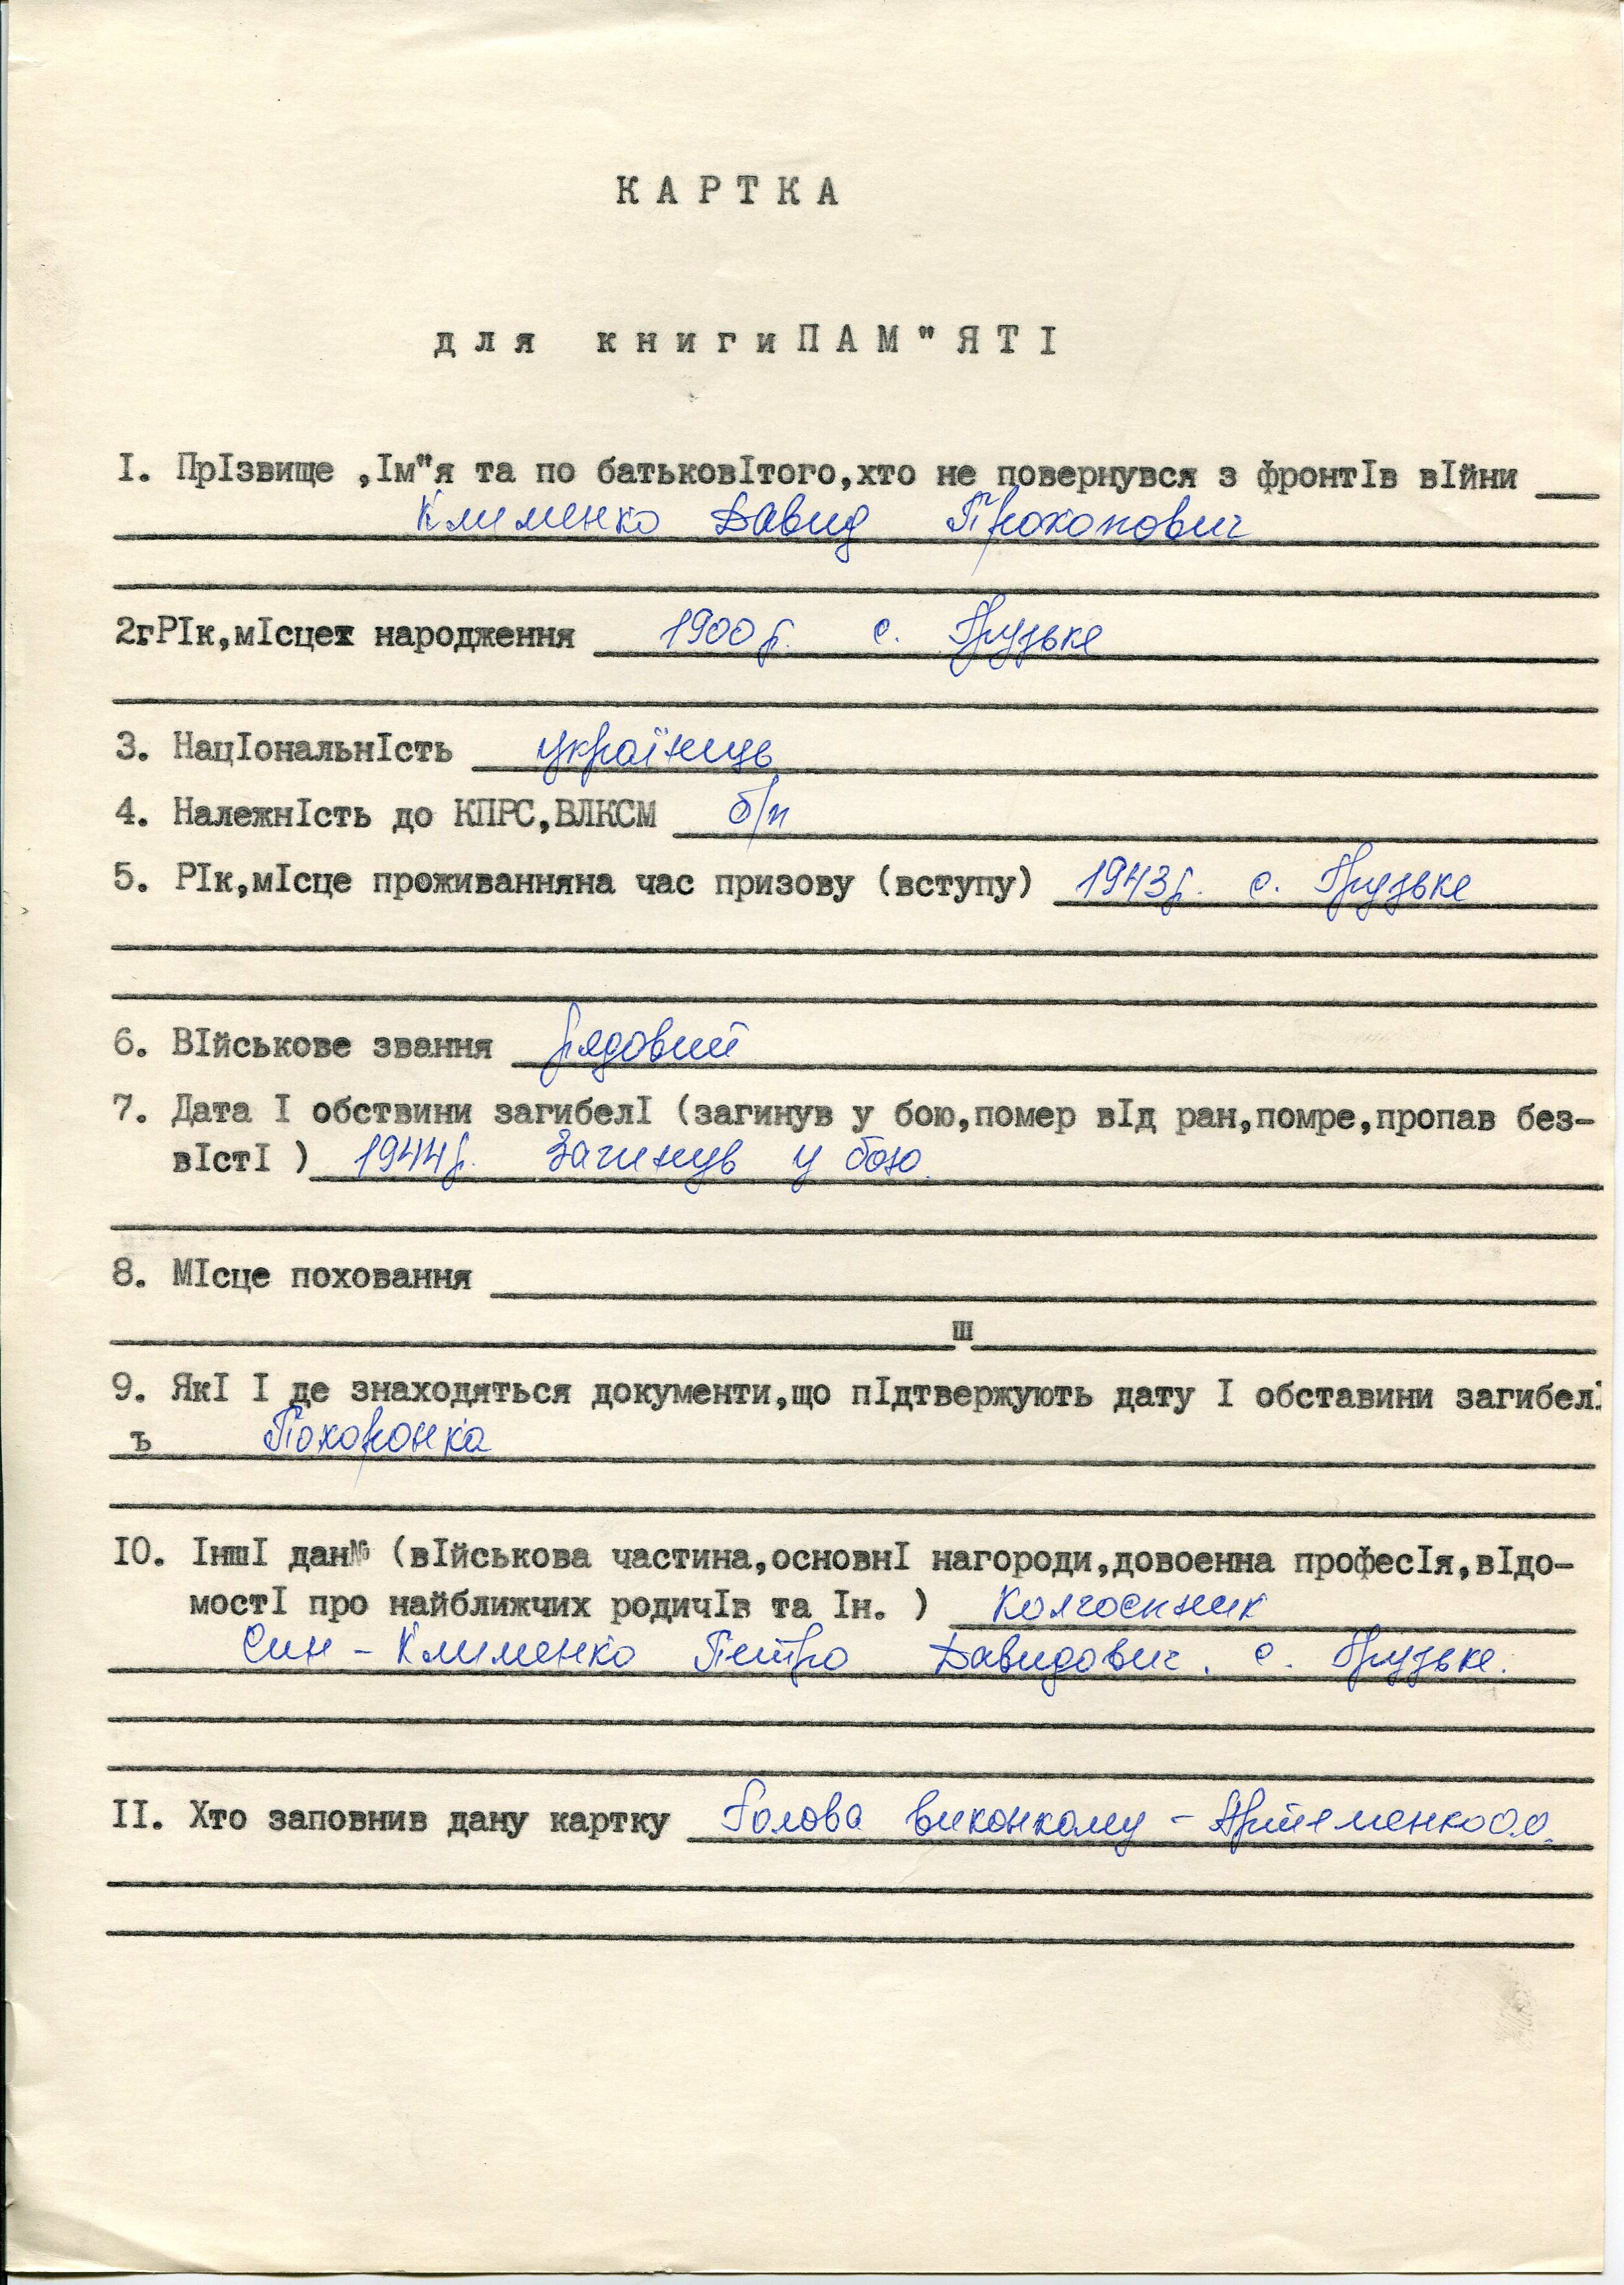 КАРТКА
для книги ПАМ"ЯТІ
І. ПрІзвище ,Ім"я та по батьковІтого,хто не повернувся з фронтІв вІйни
Клименко Давид Прокопович
2гРІк,мІсцех народження 1900 р. с. Грузьке
3. НацІональнІсть українець
4. НалежнІсть до КПРС,ВЛКСМ б/п
5. РІк,мІсце проживанняна час призову (вступу) 1943 р. с. Грузьке
6. ВІйськове звання рядовий
7. Дата І обствини загибелІ (загинув у бою,помер вІд ран,помре,пропав без-
вІстІ ) 1944 р. Загинув у бою.
8. МІсце поховання
ш
9. ЯкІ І де знаходяться документи,що пІдтвержують дату І обставини загибелІ
ъ Похоронка
ІО. ІншІ дан№ (вІйськова частина,основнІ нагороди,довоенна професІя,вІдо-
мостІ про найближчих родичІв та Ін. ) Колгоспник
Син - Клименко Петро Давидович. с. Грузьке.
ІІ. Хто заповнив дану картку Голова виконкому - Артеменко О.О.